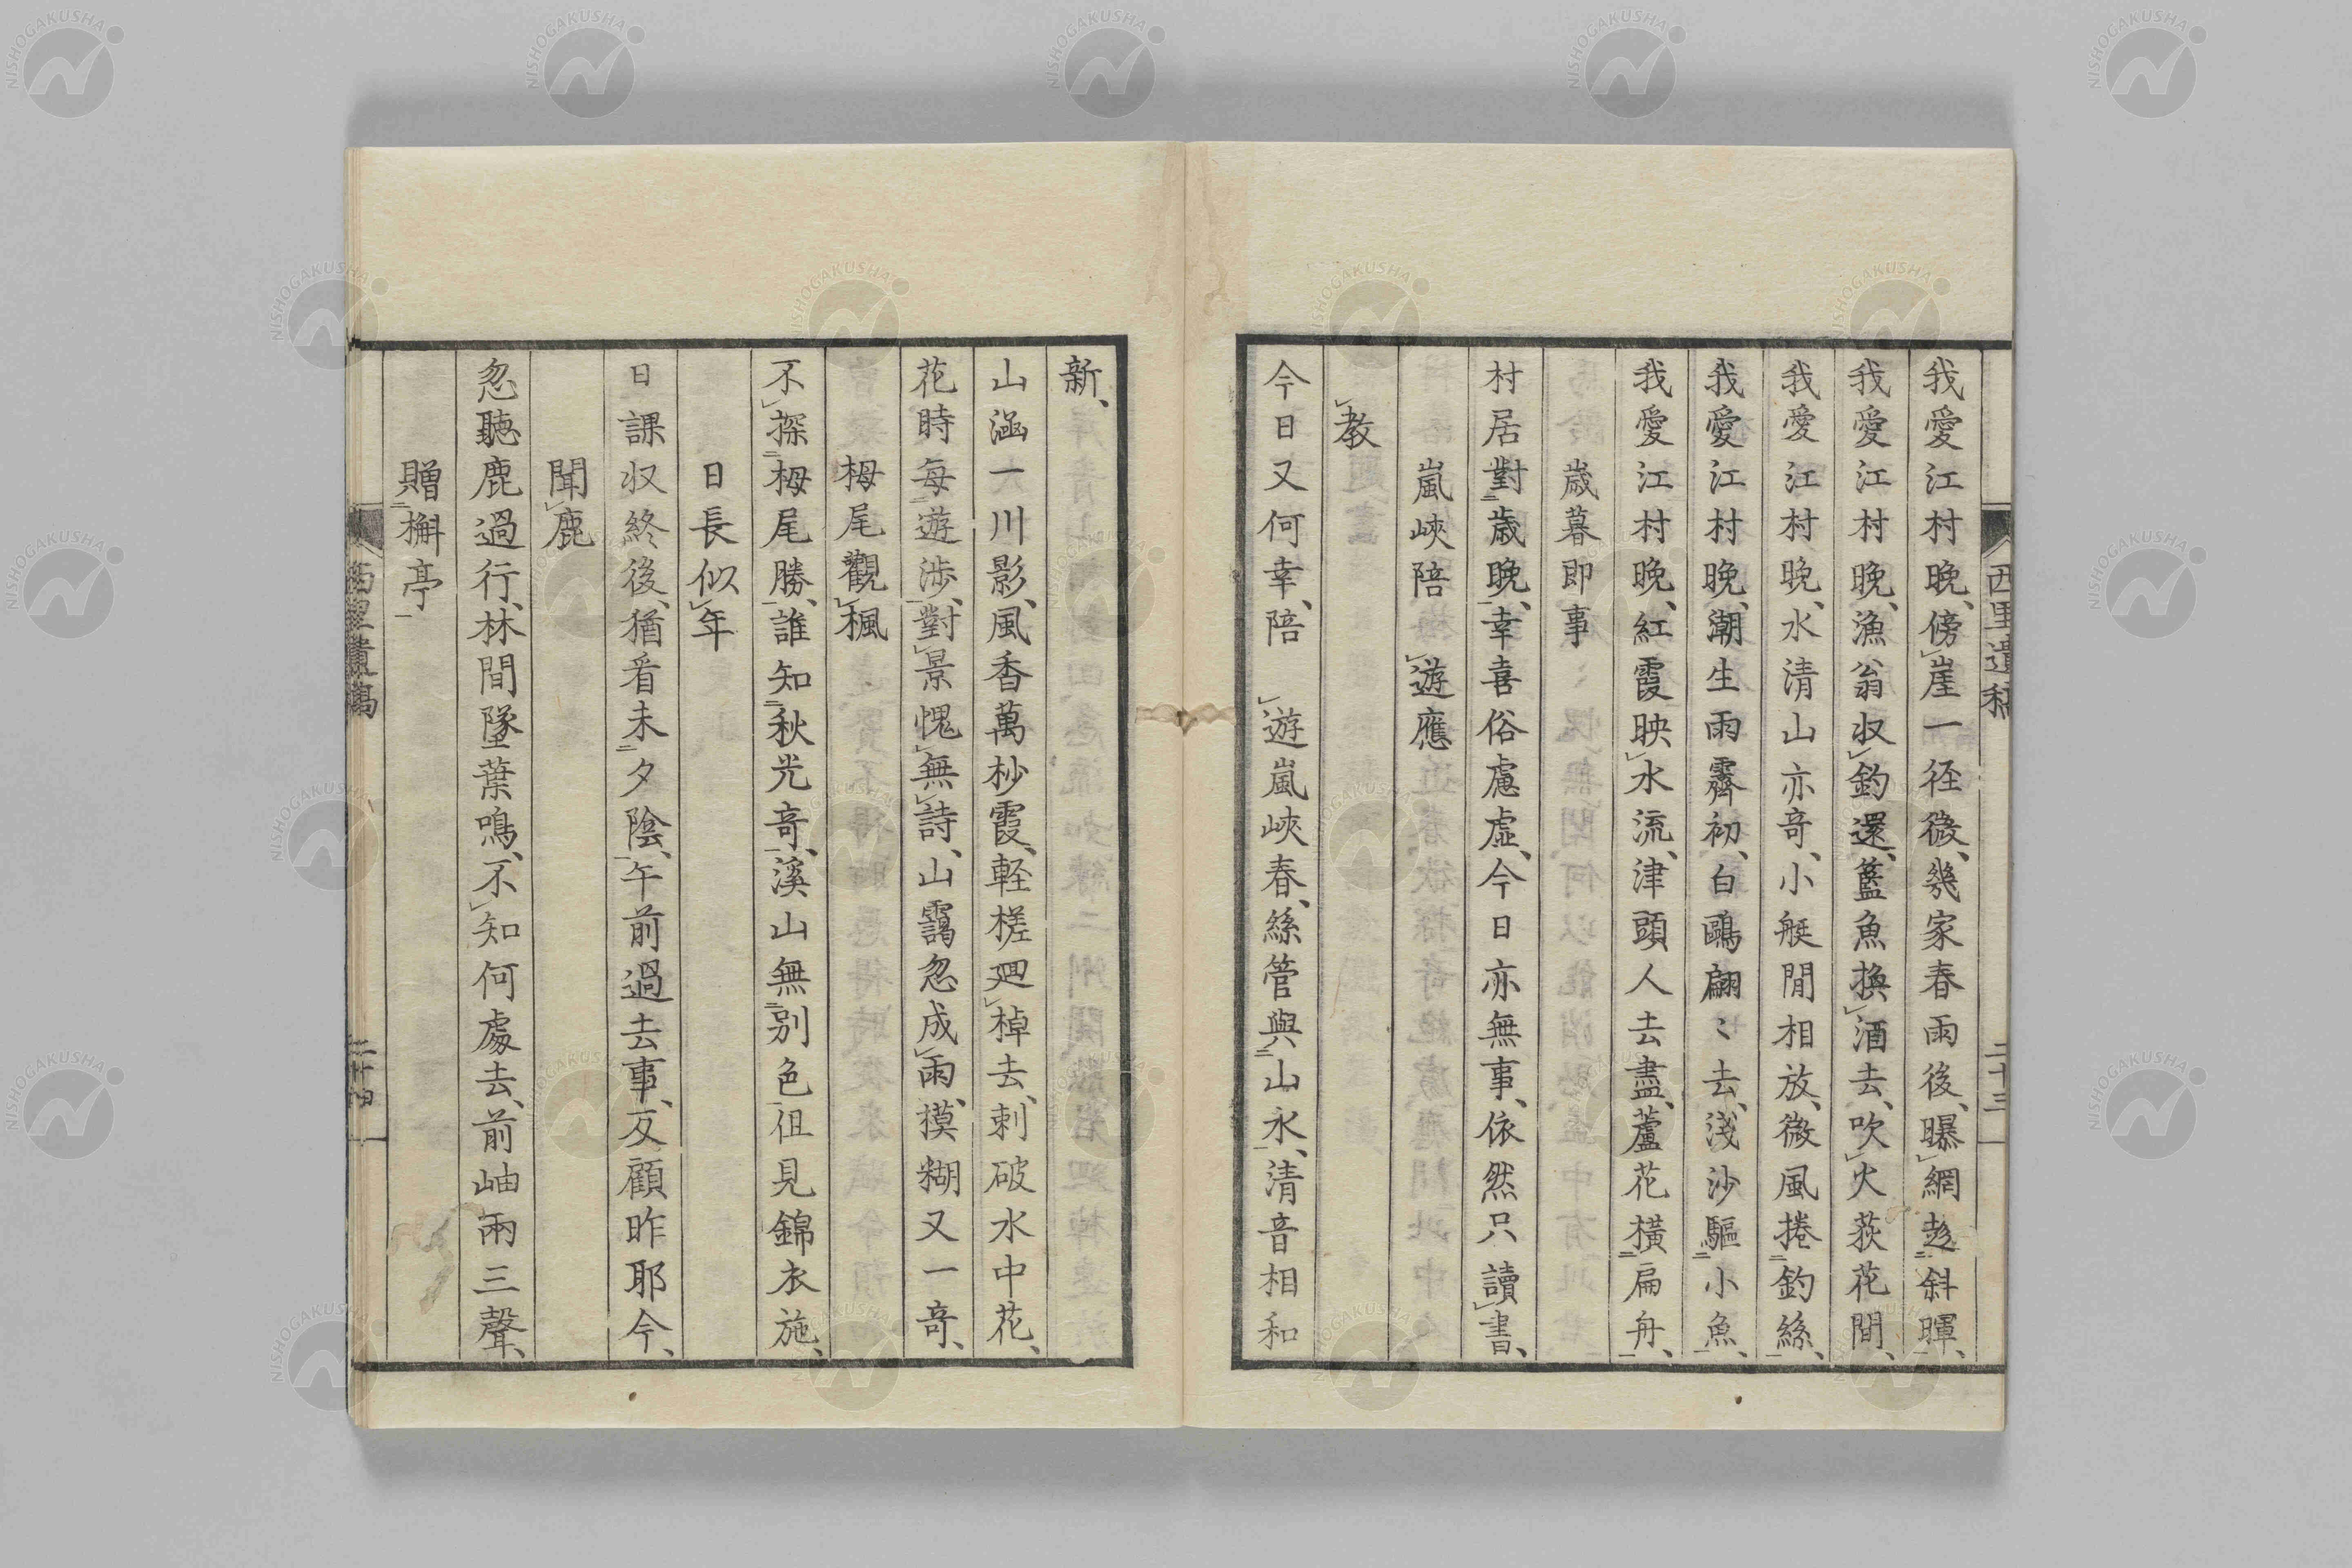 西里遺稿
二十三
我愛江村晚、傍崖一径微、幾家春雨後、曝網趁斜暉、
我愛江村晚、漁翁収釣還、籃魚換酒去、吹火荻花間、
我愛江村晚、水清山亦奇、小艇閒相放、微風捲釣絲、
我愛江村晚、潮生雨霽初、白鷗翩〻去、淺沙驅小魚、
我愛江村晚、紅霞映水流、津頭人去盡、蘆花橫扁舟、
歳暮即事
村居對歳晚、幸喜俗慮虛、今日亦無事、依然只讀書、
嵐峽陪遊應
教
今日又何幸、陪遊嵐峽春、絲管與山水、清音相和
新、
山涵一川影、風香萬杪霞、軽槎廻棹去、刺破水中花、
花時每遊渉、對景愧無詩、山靄忽成雨、模糊又一奇、
栂尾觀楓
不探栂尾勝、誰知秋光奇、溪山無別色、但見錦衣施、
日長似年
日課収終後、猶看未夕陰、午前過去事、反顧昨耶今、
聞鹿
忽聽鹿過行、林間墜葉鳴、不知何處去、前岫兩三聲、
贈槲亭
西里遺稿
二十四
NISHOGAKUSHA